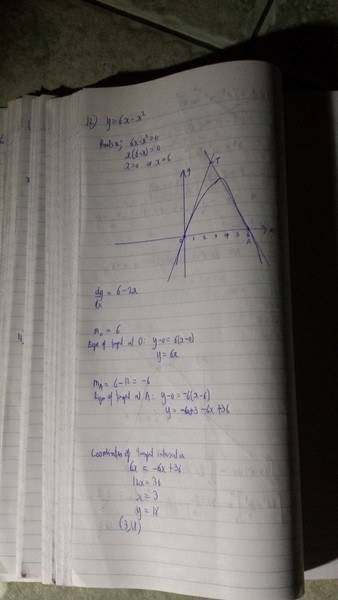 12) y=6x-x²
Roots; 6x-x²=0
x(6-x)=0
x=0 or x=6
y
T
x
0 1 2 3 4 5 6
A
dy/dx = 6-2x
m₀ = 6
Eqn of tangent at O: y-0=6(x-0)
y=6x
m_A = 6-12 = -6
Eqn of tangent at A: y-0=-6(x-6)
y= -6x+36
Coordinates of tangent intersection
6x = -6x+36
12x=36
x=3
y=18
(3,18)